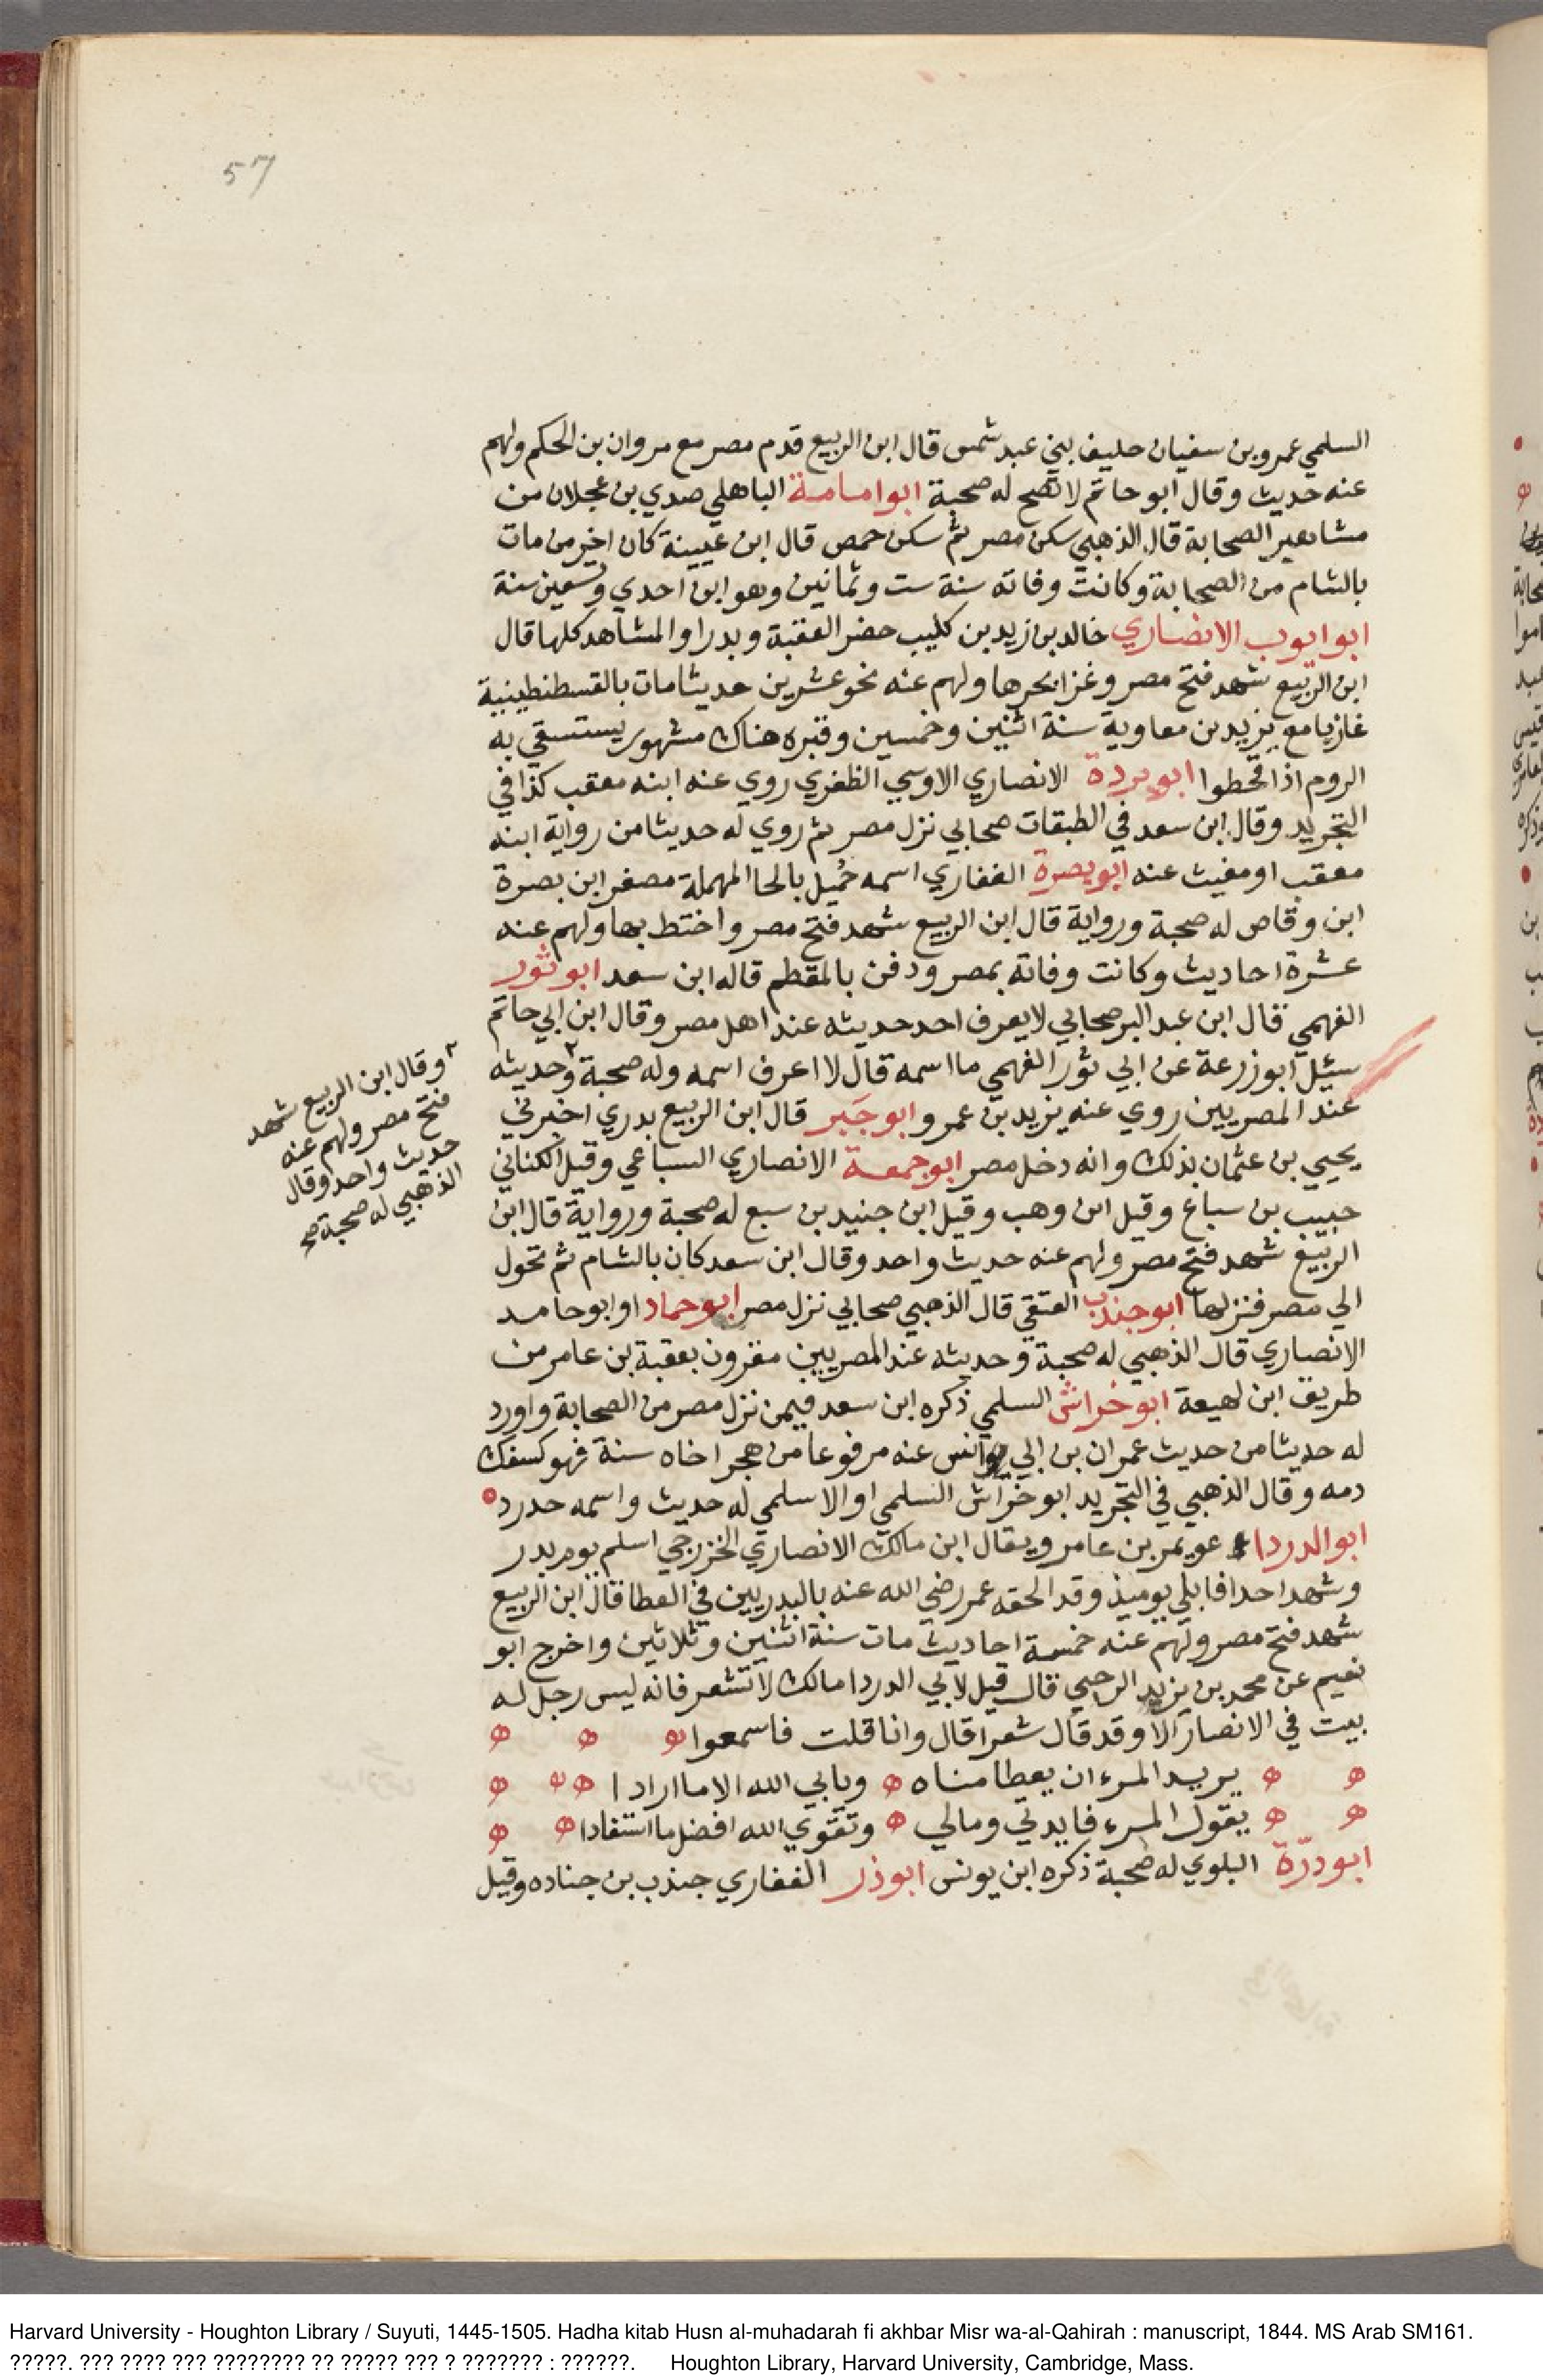 57
السلمي عمرو بن سفيان حليف بني عبد شمس قال ابن الربيع قدم مصر مع مروان بن الحكم ولهم
عنه حديث وقال ابو حاتم لا تصح له صحبة ابوامامة الباهلي صدي بن عجلان من
مشاهير الصحابة قال الذهبي سكن مصر ثم سكن حمص قال ابن عيينة كان اخر من مات
بالشام من الصحابة وكانت وفاته سنة ست وثمانين وهو ابن احدي وتسعين سنة
ابو ايوب الانصاري خالد بن زيد بن كليب حضر العقبة وبدرا والمشاهد كلها قال
ابن الربيع شهد فتح مصر وغزا بحرها ولهم عنه نحو عشرين حديثا مات بالقسطنطينية
غازيا مع يزيد بن معاوية سنة اثنين وخمسين وقبره هناك مشهور يستسقي به
الروم اذا قحطوا ابو بردة الانصاري الاوسي الظفري روي عنه ابنه معقب كذا في
التجريد وقال ابن سعد في الطبقات صحابي نزل مصر ثم روي له حديثا من رواية ابنه
معقب او مغيث عنه ابو بصرة الغفاري اسمه حُميل بالحا المهملة مصغر ابن بصرة
ابن وقاص له صحبة ورواية قال ابن الربيع شهد فتح مصر واختط بها ولهم عنه
عشرة احاديث وكانت وفاته بمصر ودفن بالمقطم قاله ابن سعد ابو ثور
الفهمي قال ابن عبد البر صحابي لا يعرف احد حديثه عند اهل مصر وقال ابن ابي حاتم
سيئل ابو زرعة عن ابي ثور الفهمي ما اسمه قال لا اعرف اسمه وله صحبة٢ وحديثه
عند المصريين روي عنه يزيد بن عمرو ابو جَبر قال ابن الربيع بدري اخبرني
يحيي بن عثمان بذلك وانه دخل مصر ابو جمعة الانصاري السباعي وقيل الكناني
حبيب بن سباع وقيل ابن وهب وقيل ابن جنيد بن سبع له صحبة ورواية قال ابن
الربيع شهد فتح مصر ولهم عنه حديث واحد وقال ابن سعد كان بالشام ثم تحول
الي مصر فنزلها ابو جندب العتقي قال الذهبي صحابي نزل مصر ابو حماد او ابو حامد
الانصاري قال الذهبي له صحبة وحديثه عند المصريين مقرون بعقبة بن عامر من
طريق ابن لهيعة ابو خراش السلمي ذكره ابن سعد فيمن نزل مصر من الصحابة واورد
له حديثا من حديث عمران بن ابي انس عنه مرفوعا من هجر اخاه سنة فهو كسفك
دمه وقال الذهبي في التجريد ابو خراش السلمي او الاسلمي له حديث واسمه حدرد
ابو الدرداء عويمر بن عامر ويقال ابن مالك الانصاري الخزرجي اسلم يوم بدر
وشهد احدا فابلي يوميذ وقد الحقه عمر رضي الله عنه بالبدريين في العطا قال ابن الربيع
شهد فتح مصر ولهم عنه خمسة احاديث مات سنة اثنين وثلاثين واخرج ابو
نعيم عن محمد بن يزيد الرحبي قال قيل لابي الدردا مالك لا تشعر فانه ليس رجل له
بيت في الانصار الا وقد قال شعرا قال وانا قلت فاسمعوا
يريد المرء ان يعطا مناه ويابي الله الا ما ارادا
يقول المرء فايدتي ومالي وتقوي الله افضل ما استفادا
ابو درّة البلوي له صحبة ذكره ابن يونس ابوذر الغفاري جندب بن جناده وقيل
٢ وقال ابن الربيع شهد
فتح مصر ولهم عنه
حديث واحد وقال
الذهبي له صحبة صح
Harvard University - Houghton Library / Suyuti, 1445-1505. Hadha kitab Husn al-muhadarah fi akhbar Misr wa-al-Qahirah : manuscript, 1844. MS Arab SM161.
?????. ??? ???? ??? ???????? ?? ????? ??? ? ??????? : ??????. Houghton Library, Harvard University, Cambridge, Mass.